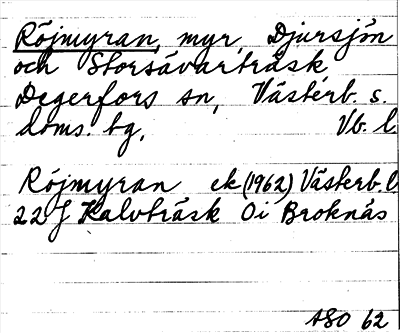 Röjmyran, myr, Djursjön
och Storsävarträsk,
Degerfors sn, Västerb. s.
doms. tg, Vb. l
Röjmyran ek (1962) Västerb. l
22 J Kalvträsk 0i Broknäs
ASO 62